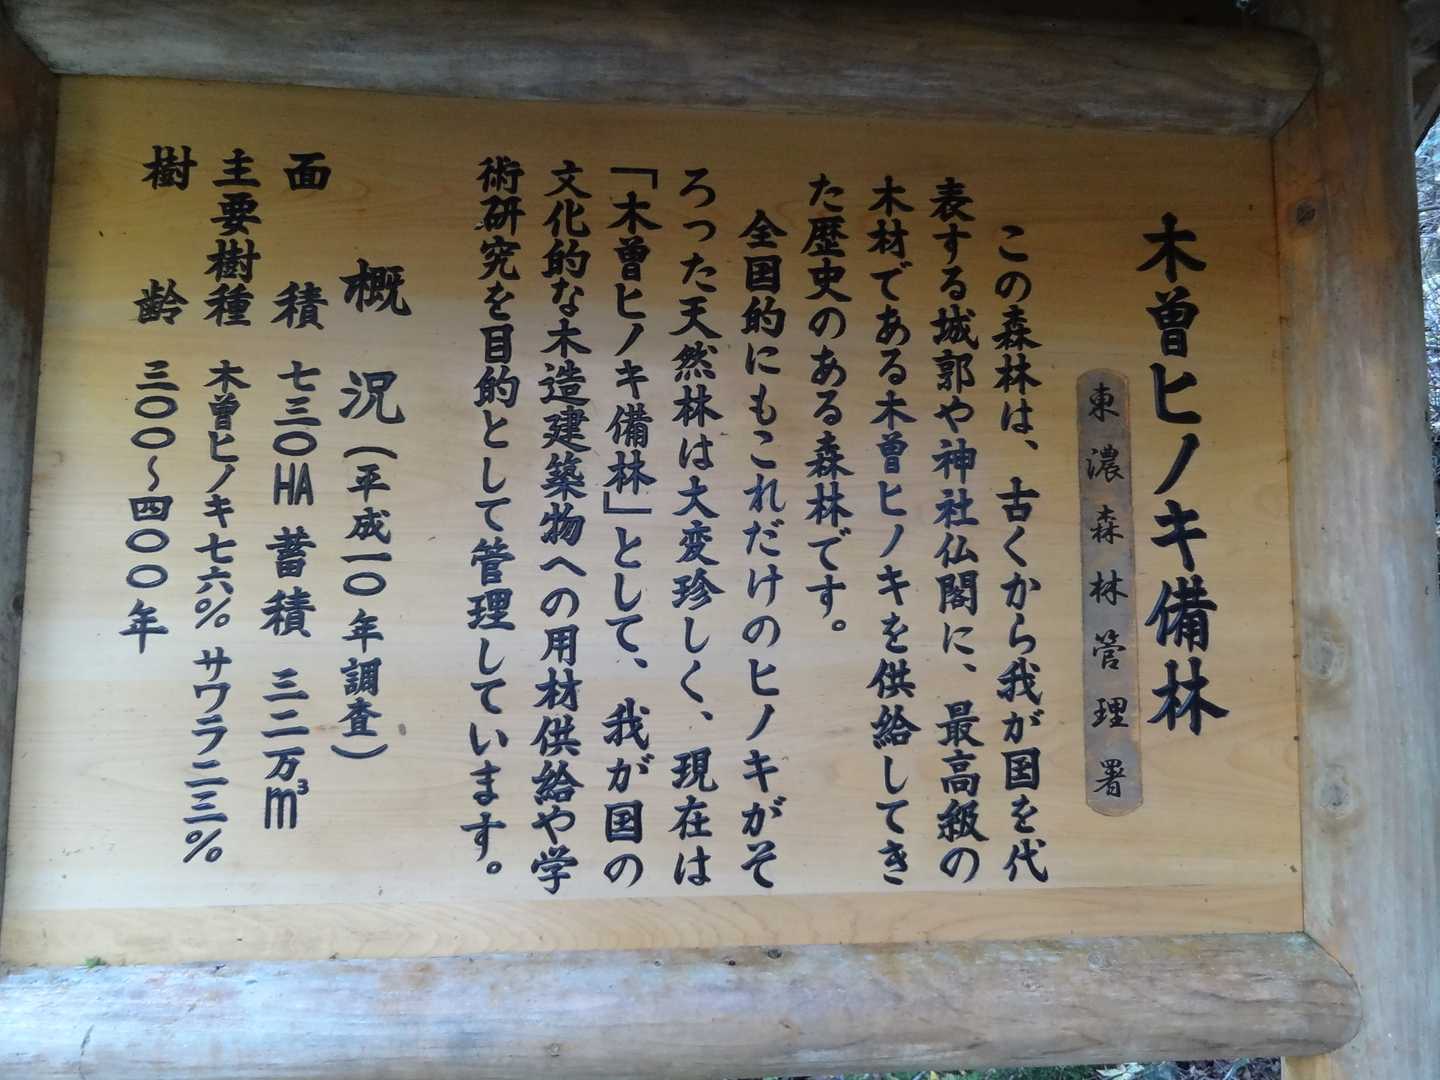 木曽ヒノキ備林
東濃森林管理署
この森林は、古くから我が国を代
表する城郭や神社仏閣に、最高級の
木材である木曽ヒノキを供給してき
た歴史のある森林です。
全国的にもこれだけのヒノキがそ
ろった天然林は大変珍しく、現在は
「木曽ヒノキ備林」として、我が国の
文化的な木造建築物への用材供給や学
術研究を目的として管理しています。
概況(平成一〇年調査)
面積 七三〇HA 蓄積 三二万m³
主要樹種 木曽ヒノキ七六% サワラ二三%
樹齢 三〇〇～四〇〇年